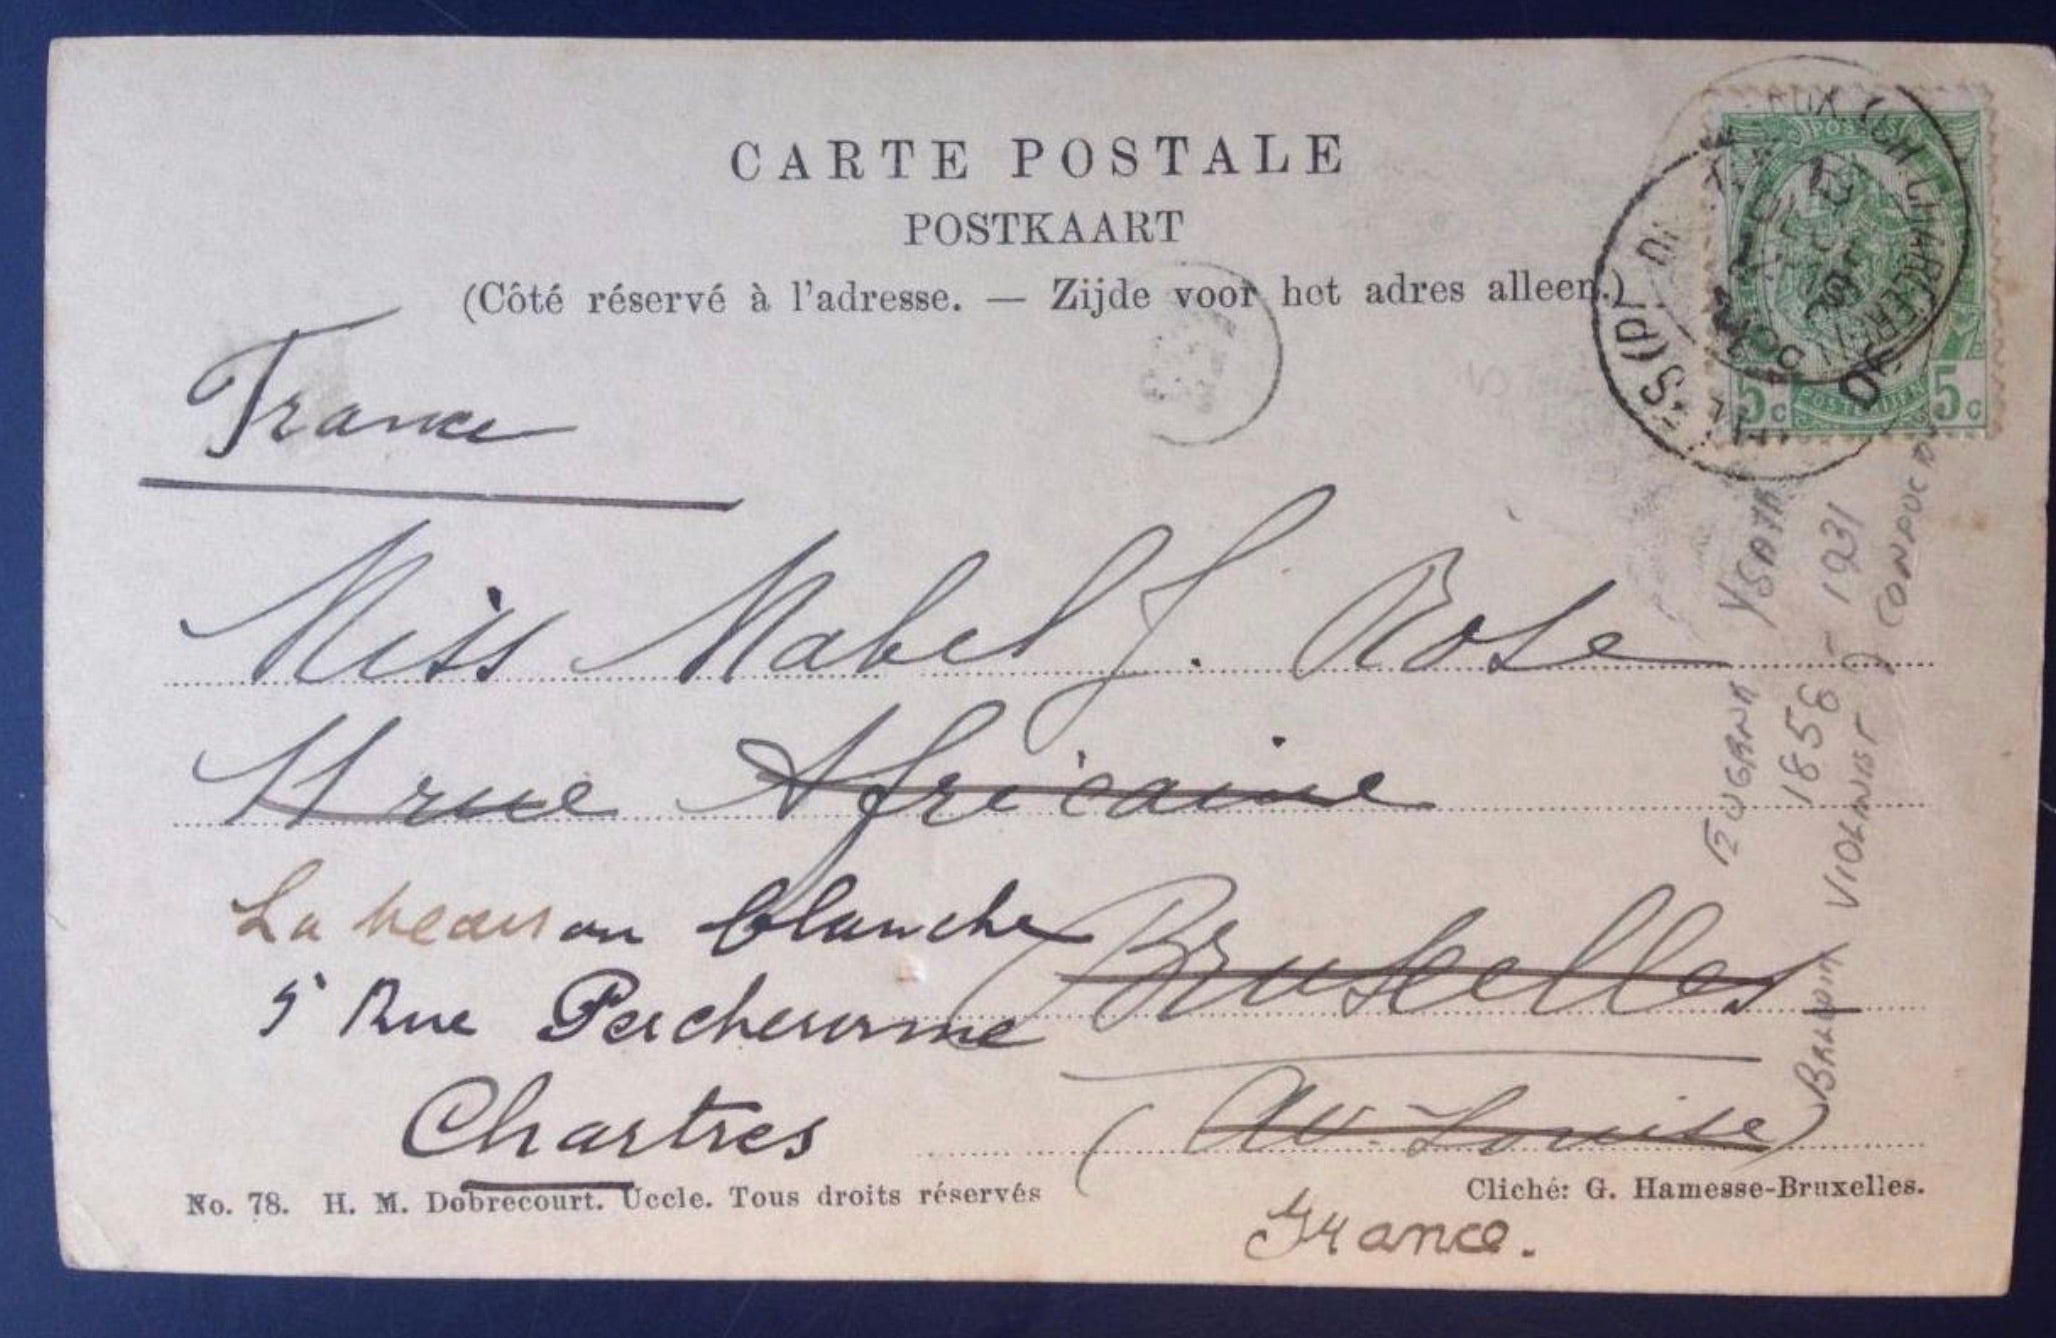 CARTE POSTALE
POSTKAART
(Côté réservé à l'adresse. — Zijde voor het adres alleen.)
France
Miss Mabel J. Rose
11 rue Africaine
Bruxelles
(Av. Louise)
La maison blanche
5 Rue Percheronne
Chartres
France.
No. 78. H. M. Dobrecourt. Uccle. Tous droits réservés
Cliché: G. Hamesse-Bruxelles.
5c 5c
1856 - 1931
VIOLINIST